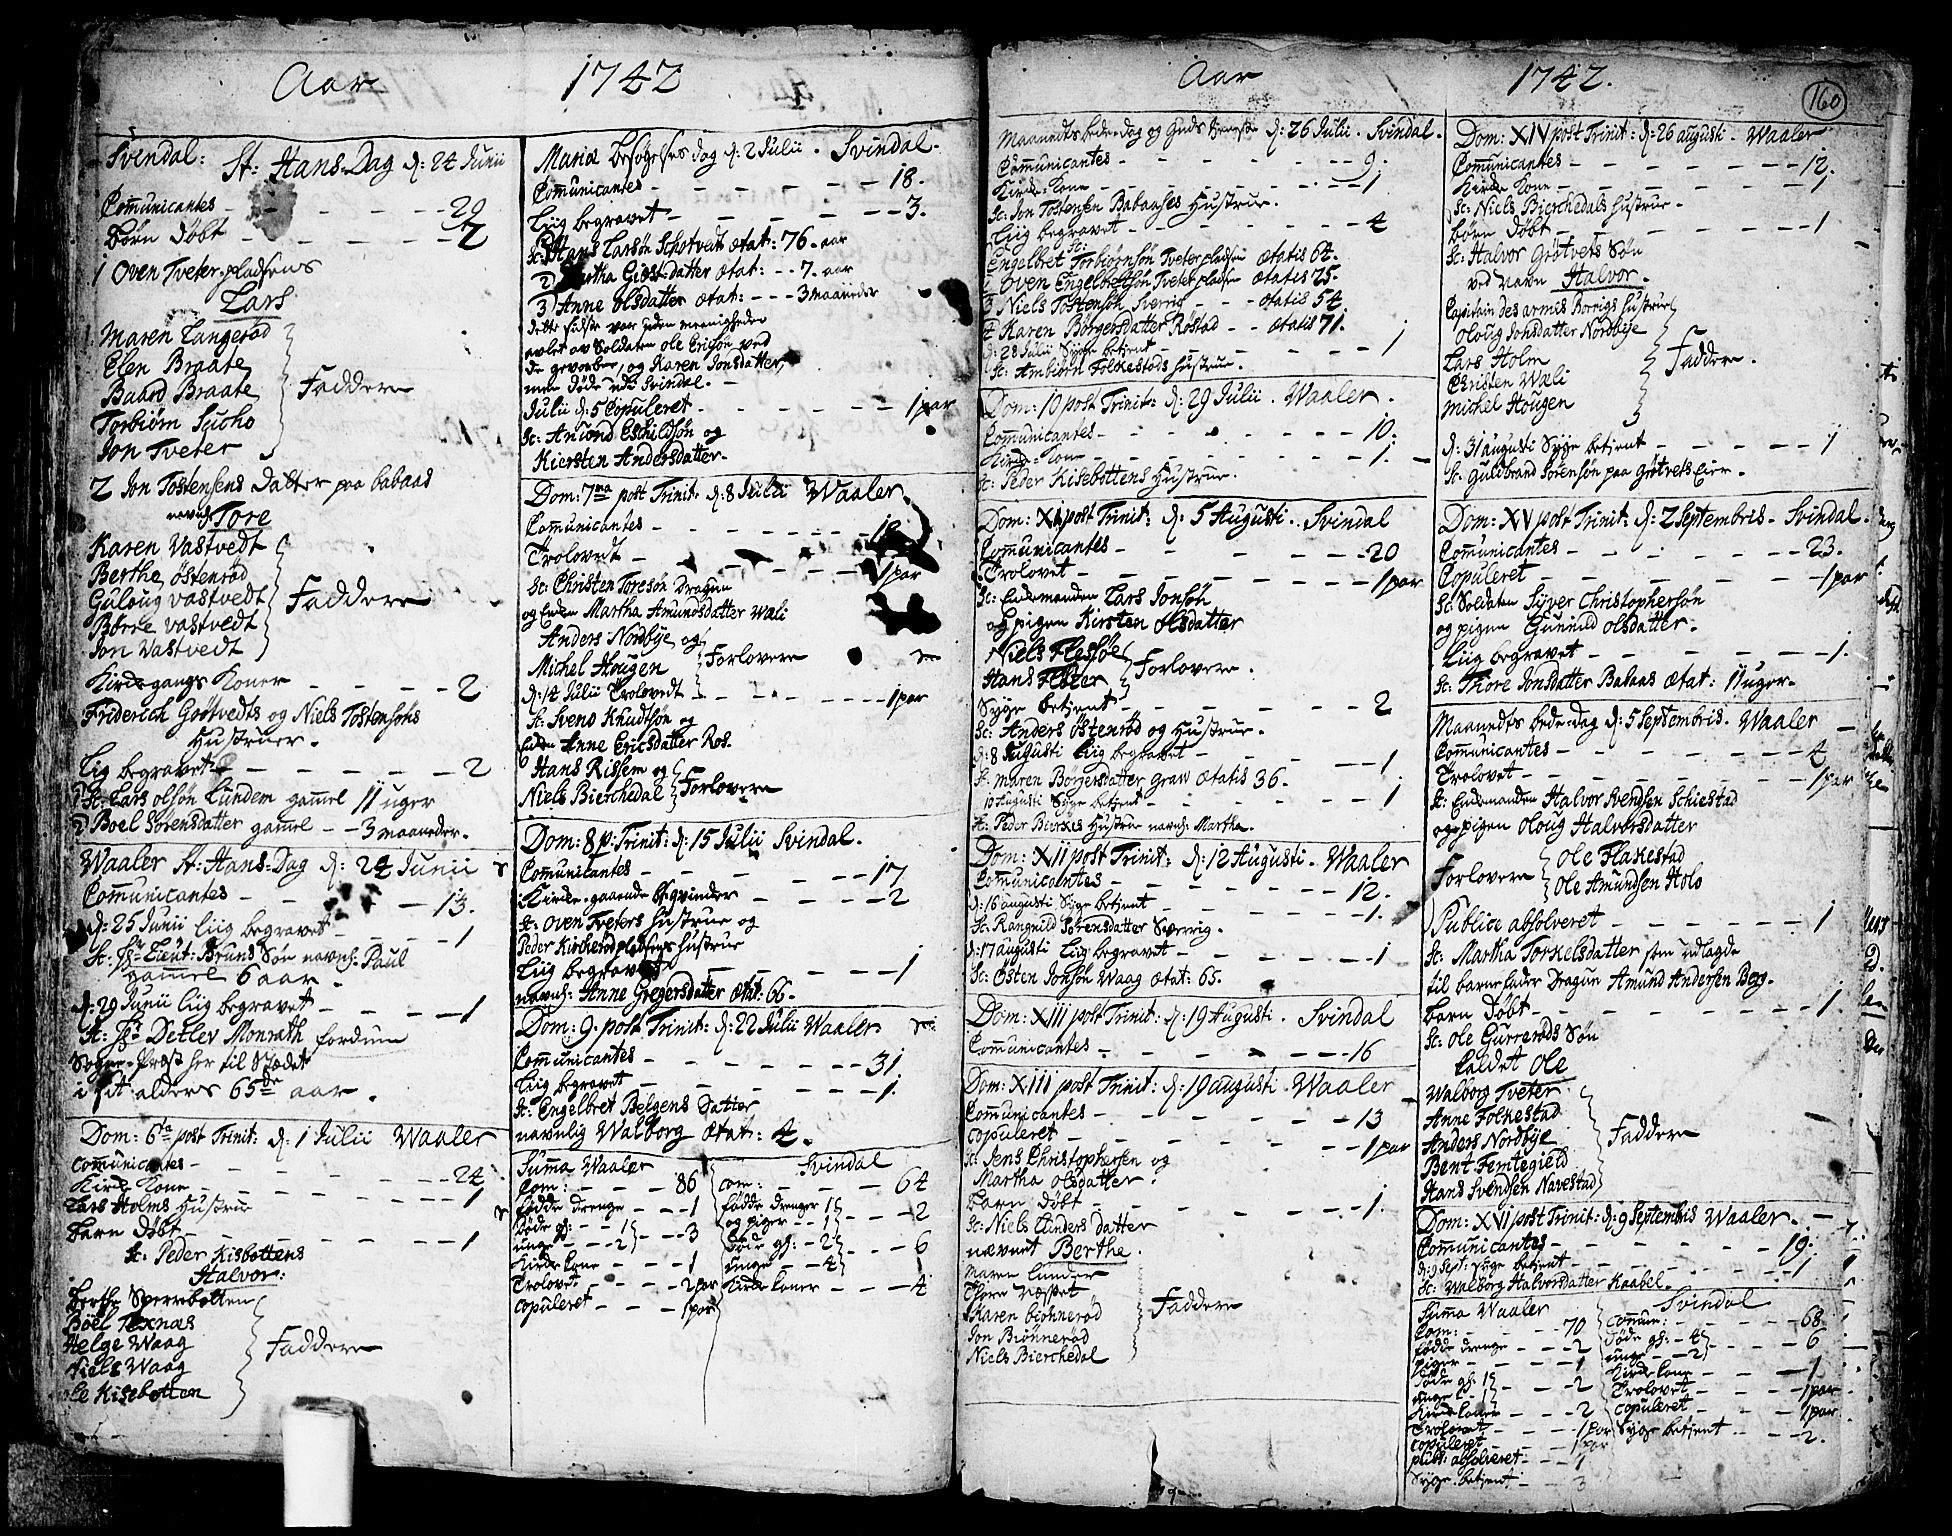 Aar 1742
Svendal: St: Hans-Dag d: 24 Junii
Comunicantes - - - - - 20
Børn Døbt - - - - - 2
1 Oven Tveter-pladsens
Lars
Maren Langerød
Elen Braate
Baard Braate
Torbiørn Sucho
Jon Tveter
Faddere
2 Jon Tostensens Datter paa babaas
navnl: Tore
Karen Vastvedt
Berthe Østenrød
Guloug Vastvedt
Børre Vastvedt
Jon Vastvedt
Faddere
Kirkegangs Koner - - - - 2
Friderich Grøtvedts og Niels Tostensøns
Hustruer.
Liig begravet - - - - - 2
1 Sc: Lars olsøn Lundem gammel 11 uger
2 Boel Sørensdatter gammel - - 3 maaneder.
Waaler St: Hans-Dag d: 24 Junii
Comunicantes - - - - 13.
d: 25 Junii Liig begravet - - - - 1
Sc: Hr Lieut: Bruns Søn navnl: Paul
gammel 6 aar.
d: 29 Junii liig begravet - - - - 1
Sc: Hr Detlev Monrath fordum
Sogne-Præst her til Stædet
i sit alders 65de aar.
Dom: 6ta post Trinit: d: 1 Julii Waaler
Comunicantes - - - - - 24
Kirke Kone - - - - - 1
Lars Holms Hustrue
Barn Døbt - - - - - 1
Sc: Peder Kisbottens
Halvor:
Berthe Sperrebotten
Boel Texnæs
Helge Waag
Niels Waag
ole Kisebotten
Faddere
Mariæ besøgelses dag d: 2 Julii. Svindal.
Comunicantes - - - - - 18.
Liig begravet - - - - - 3.
Hans Larsøn Schotvedt ætat: 76. aar
2) Martha Giøst-datter ætat: - - 7. aar
3) Anne olsdatter ætat: - - - 3 maaneder
avlet av Soldaten ole Ericsøn ved
de gevorbne, og Karen Jonsdatter,
men døde udi Svindal. -
Julii d: 5 Copuleret - - - - - 1 par
Sc: Amond Eschildsøn og
Kiersten Andersdatter.
Dom: 7ma post Trinit: d: 8 Julii Waaler.
Comunicantes - - - - - 18
Trolovedt - - - - - 1 par
Sc: Christen Toresøn Dragun
og Enken Martha Amundsdatter Wæli
Anders Nordbye og
Michel Hougen
Forlovere
d: 14 Julii Trolovedt - - - - 1 par
Sc: Svend Knudtsøn og
Enken Anne Ericsdatter Ros.
Hans Rissem og
Niels Bierchedal
Forlovere
Dom: 8 p: Trinit: d: 15 Julii Svindal.
Comunicantes - - - - - 17
Kirke-gaaende qvinder - - - - 2
Sc: Oven Tveters Hustrue og
Peder Kircherødpladsens Hustrue
Liig begravet - - - - - 1
navnl: Anne Gregersdatter ætat: 66.
Dom: 9. post Trinit: d: 22 Julii Waaler
Comunicantes - - - - - 31.
Liig begravet - - - - - 1.
Sc: Engelbret Belgens Datter
navnlig Walborg ætat: 4.
Summa Waaler
Com: - - - - 86
fødde drenge - - - 1
Døde gl: - - 1
unge - - - 2
- - 3
Kirke kone - - - 1
Trolovet - - - 2 par
copuleret - - - 1 par
Svindal
com: - - - - 64
fødde drenger 1
og piger - - 1
- - - 2
Døde gl: - 2
unge - - 4
- - - 6
Kirke koner - - - 4
Aar 1742.
160
Maanedts bede-dag og Guds tieneste d: 26 Julii. Svindal.
Comunicantes - - - - - 9.
Kirke-Kone - - - - - 1
Sc: Jon Tostensen Babaases Hustrue.
Liig begravet - - - - - 4
Sc:
Engelbret Torbiørnsøn Tveterpladsen ætatis 64.
Oven Engelbretsøn Tveterpladsen ætatis 25.
Niels Tostensøn Sverrig - - - ætatis 54
Karen Børgersdatter Rostad - - ætatis 71.
d: 28 Julii Syge betient - - - - - 1
Sc: Ambiørn Folkestads Hustrue.
Dom: 10 post Trinit: d: 29 Julii. Waaler.
Comunicantes - - - - - 10.
Kirke-Kone - - - - - 1.
Sc: Peder Kisebottens Hustrue.
Dom: XI post Trinit: d: 5 Augusti. Svindal
Comunicantes - - - - - 20
Trolovet - - - - - 1 par
Sc: Enkemanden Lars Jonsøn
og pigen Kirsten Olsdatter
Niels Flessøe
Hans Floter
Forlovere.
Syge betient - - - - - 2
Sc: Anders Østenrød og Hustrue.
d: 8 Augusti Liig begravet - - - - 1
Sc: Maren Børgersdatter Graw ætatis 36.
10 Augusti Syge betient - - - - 1
Sc: Peder Bierkes Hustrue navnl: Martha.
Dom: XII post Trinit: d: 12 Augusti. Waaler
Comunicantes - - - - - 12.
d: 16 augusti Syge betient - - - - 1.
Sc: Rangnild Sørensdatter Sverrig.
d: 17 augusti Liig begravet - - - - 1
Sc: Østen Jonsøn Waag ætat: 65.
Dom: XIII post Trinit: d: 19 Augusti. Svindal
Comunicantes - - - - - 16
Dom: XIII post Trinit: d: 19 augusti. Waaler
Comunicantes - - - - - 13
copuleret - - - - - 1 par
Sc: Jens Christophersen og
Martha olsdatter.
Barn Døbt - - - - - 1.
Sc: Niels Lunders datter
nævnet Berthe.
Maren Lunder
Thore Næsset
Karen biønnerød
Jon Biønnerød
Niels Bierchedal
Faddere
Dom: XIV post Trinit: d: 26 augusti. Waaler
Comunicantes - - - - - 12.
Kirke Kone - - - - - 1
Sc: Niels Bierchedals hustrue.
Børn Døbt - - - - - 1
Sc: Halvor Grøtvets Søn
ved navn Halvor.
Capitain des armis Bornigs hustrue
Oloug Jonsdatter Nordbye
Lars Holm
Christen Wæli
Michel Hougen
Faddere.
d: 31 augusti Syge betient - - - - 1
Sc: Guldbrand Sørensøn paa Grøtvets Eier.
Dom: XV post Trinit: d: 2 Septembris. Svindal.
Comunicantes - - - - - 23.
Copuleret - - - - - 1 par
Sc: Soldaten Syver Christophersøn
og pigen Gunnild olsdatter.
Liig begravet - - - - - 1.
Sc: Thore Jonsdatter Babaas ætat: 11 uger.
Maanedts bede-dag d: 5 Septembris. Waaler
Comunicantes - - - - - 4
Trolovet - - - - - 1 par
Sc: Enkemanden Halvor Svendsen Schiestad
og pigen Oloug Halvorsdatter
Forlovere
Ole Flakestad
Ole Amundsen Holo
Publice absolveret - - - - - 1
Sc: Martha Torkelsdatter som udlagde
til barnefader Dragun Amund Andersen Berg.
Barn Døbt - - - - - 1
Sc: Ole Gurrerøds Søn
kaldet Ole
Walborg Tveter
Anne Folkestad
Anders Nordbye
Bent Femtegield
Hans Svendsen Navestad
Faddere
Dom: XVI post Trinit: d: 9 Septembris Waaler.
Comunicantes - - - - - 19.
d: 9 Sept: syge betient - - - - 1
Sc: Walborg Halvorsdatter Kaabel.
Summa Waaler
Com: - - - - 70
fødde drenge - - 2
piger - - - - 1
Døde gl: 1
unge - - 1
- - - 2
Kirke koner - - - 2
Trolovet - - - 1 par
Copuleret - - - 1 par
publ: absolveret - - 1
Syge betient - - - 3
Svindal
comun: - - - - 68
Døde gl: - 4
unge - - 2
- - - 6
Kirke kone - - - - 1
Trolovet - - - - 1 par
copuleret - - - - 1 par
Syge betient - - - 2.